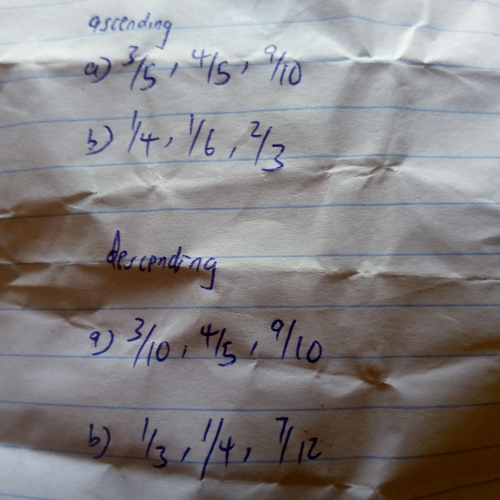 ascending
a) 3/5, 4/5, 9/10
b) 1/4, 1/6, 2/3
descending
a) 3/10, 4/5, 9/10
b) 1/3, 1/4, 7/12